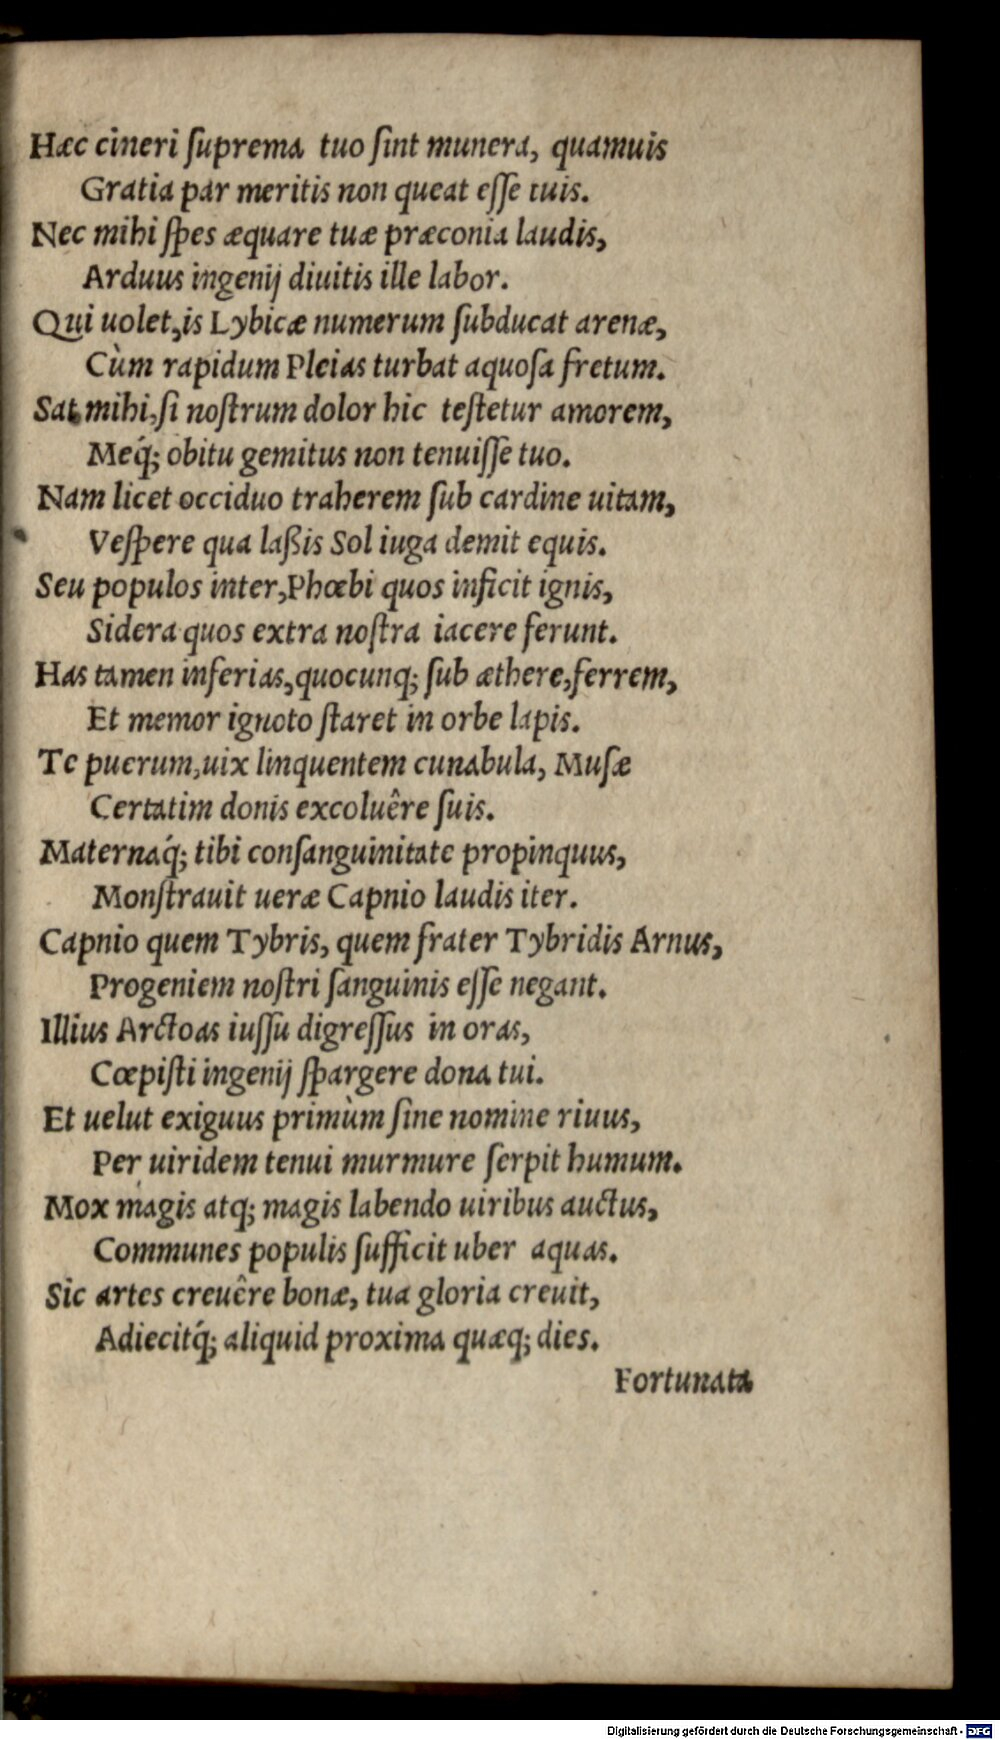 Hæc cineri ſuprema tuo ſint munera, quamuis
Gratia par meritis non queat eſſe tuis.
Nec mihi ſpes æquare tuæ præconia laudis,
Arduus ingenij diuitis ille labor.
Qui uolet, is Lybicæ numerum ſubducat arenæ,
Cùm rapidum Pleias turbat aquoſa fretum.
Sat mihi, ſi noſtrum dolor hic teſtetur amorem,
Meq́; obitu gemitus non tenuiſſe tuo.
Nam licet occiduo traherem ſub cardine uitam,
Veſpere qua laßis Sol iuga demit equis.
Seu populos inter, Phœbi quos inficit ignis,
Sidera quos extra noſtra iacere ferunt.
Has tamen inferias, quocunq; ſub æthere, ferrem,
Et memor ignoto ſtaret in orbe lapis.
Te puerum, uix linquentem cunabula, Muſæ
Certatim donis excoluêre ſuis.
Maternaq́; tibi conſanguinitate propinquus,
Monſtrauit ueræ Capnio laudis iter.
Capnio quem Tybris, quem frater Tybridis Arnus,
Progeniem noſtri ſanguinis eſſe negant.
Illius Arctoas iuſſu digreſſus in oras,
Cœpiſti ingenij ſpargere dona tui.
Et uelut exiguus primùm ſine nomine riuus,
Per uiridem tenui murmure ſerpit humum.
Mox magis atq; magis labendo uiribus auctus,
Communes populis ſufficit uber aquas.
Sic artes creuêre bonæ, tua gloria creuit,
Adiecitq́; aliquid proxima quæq; dies.
Fortunata
Digitalisierung gefördert durch die Deutsche Forschungsgemeinschaft - DFG